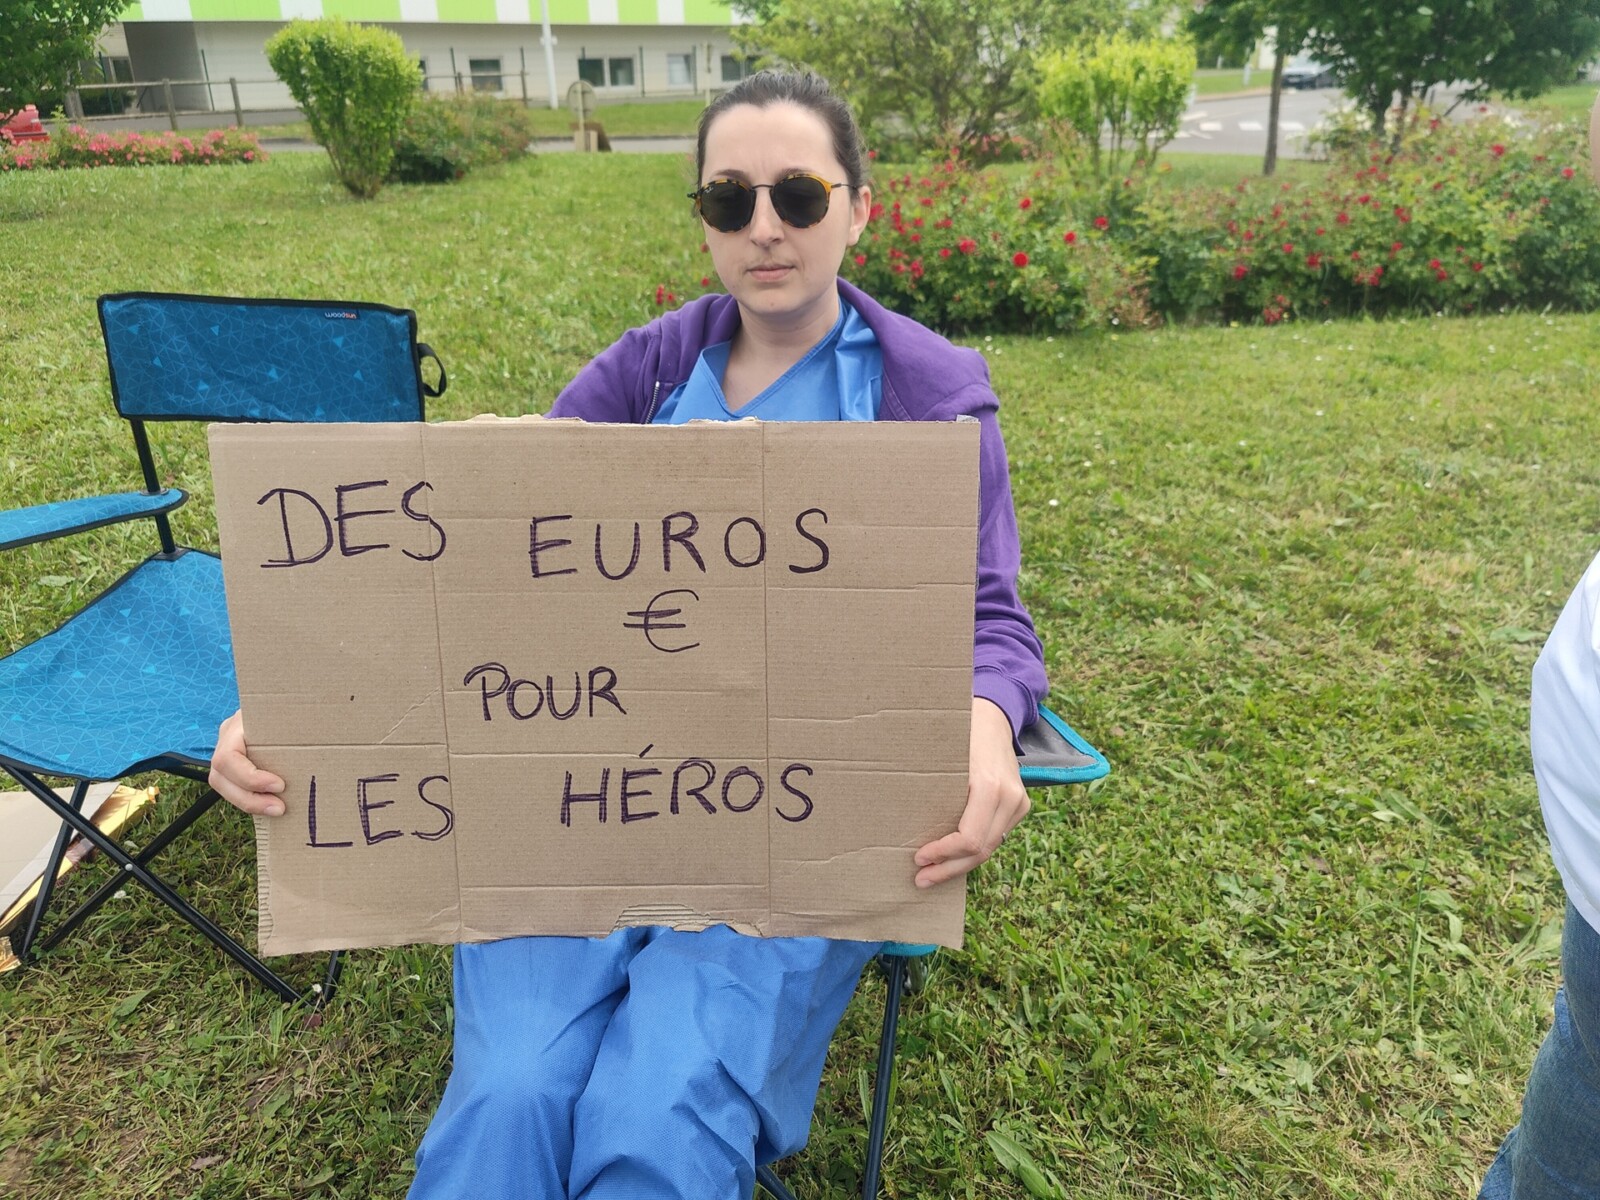 woodsun
DES EUROS
€
POUR
LES HÉROS